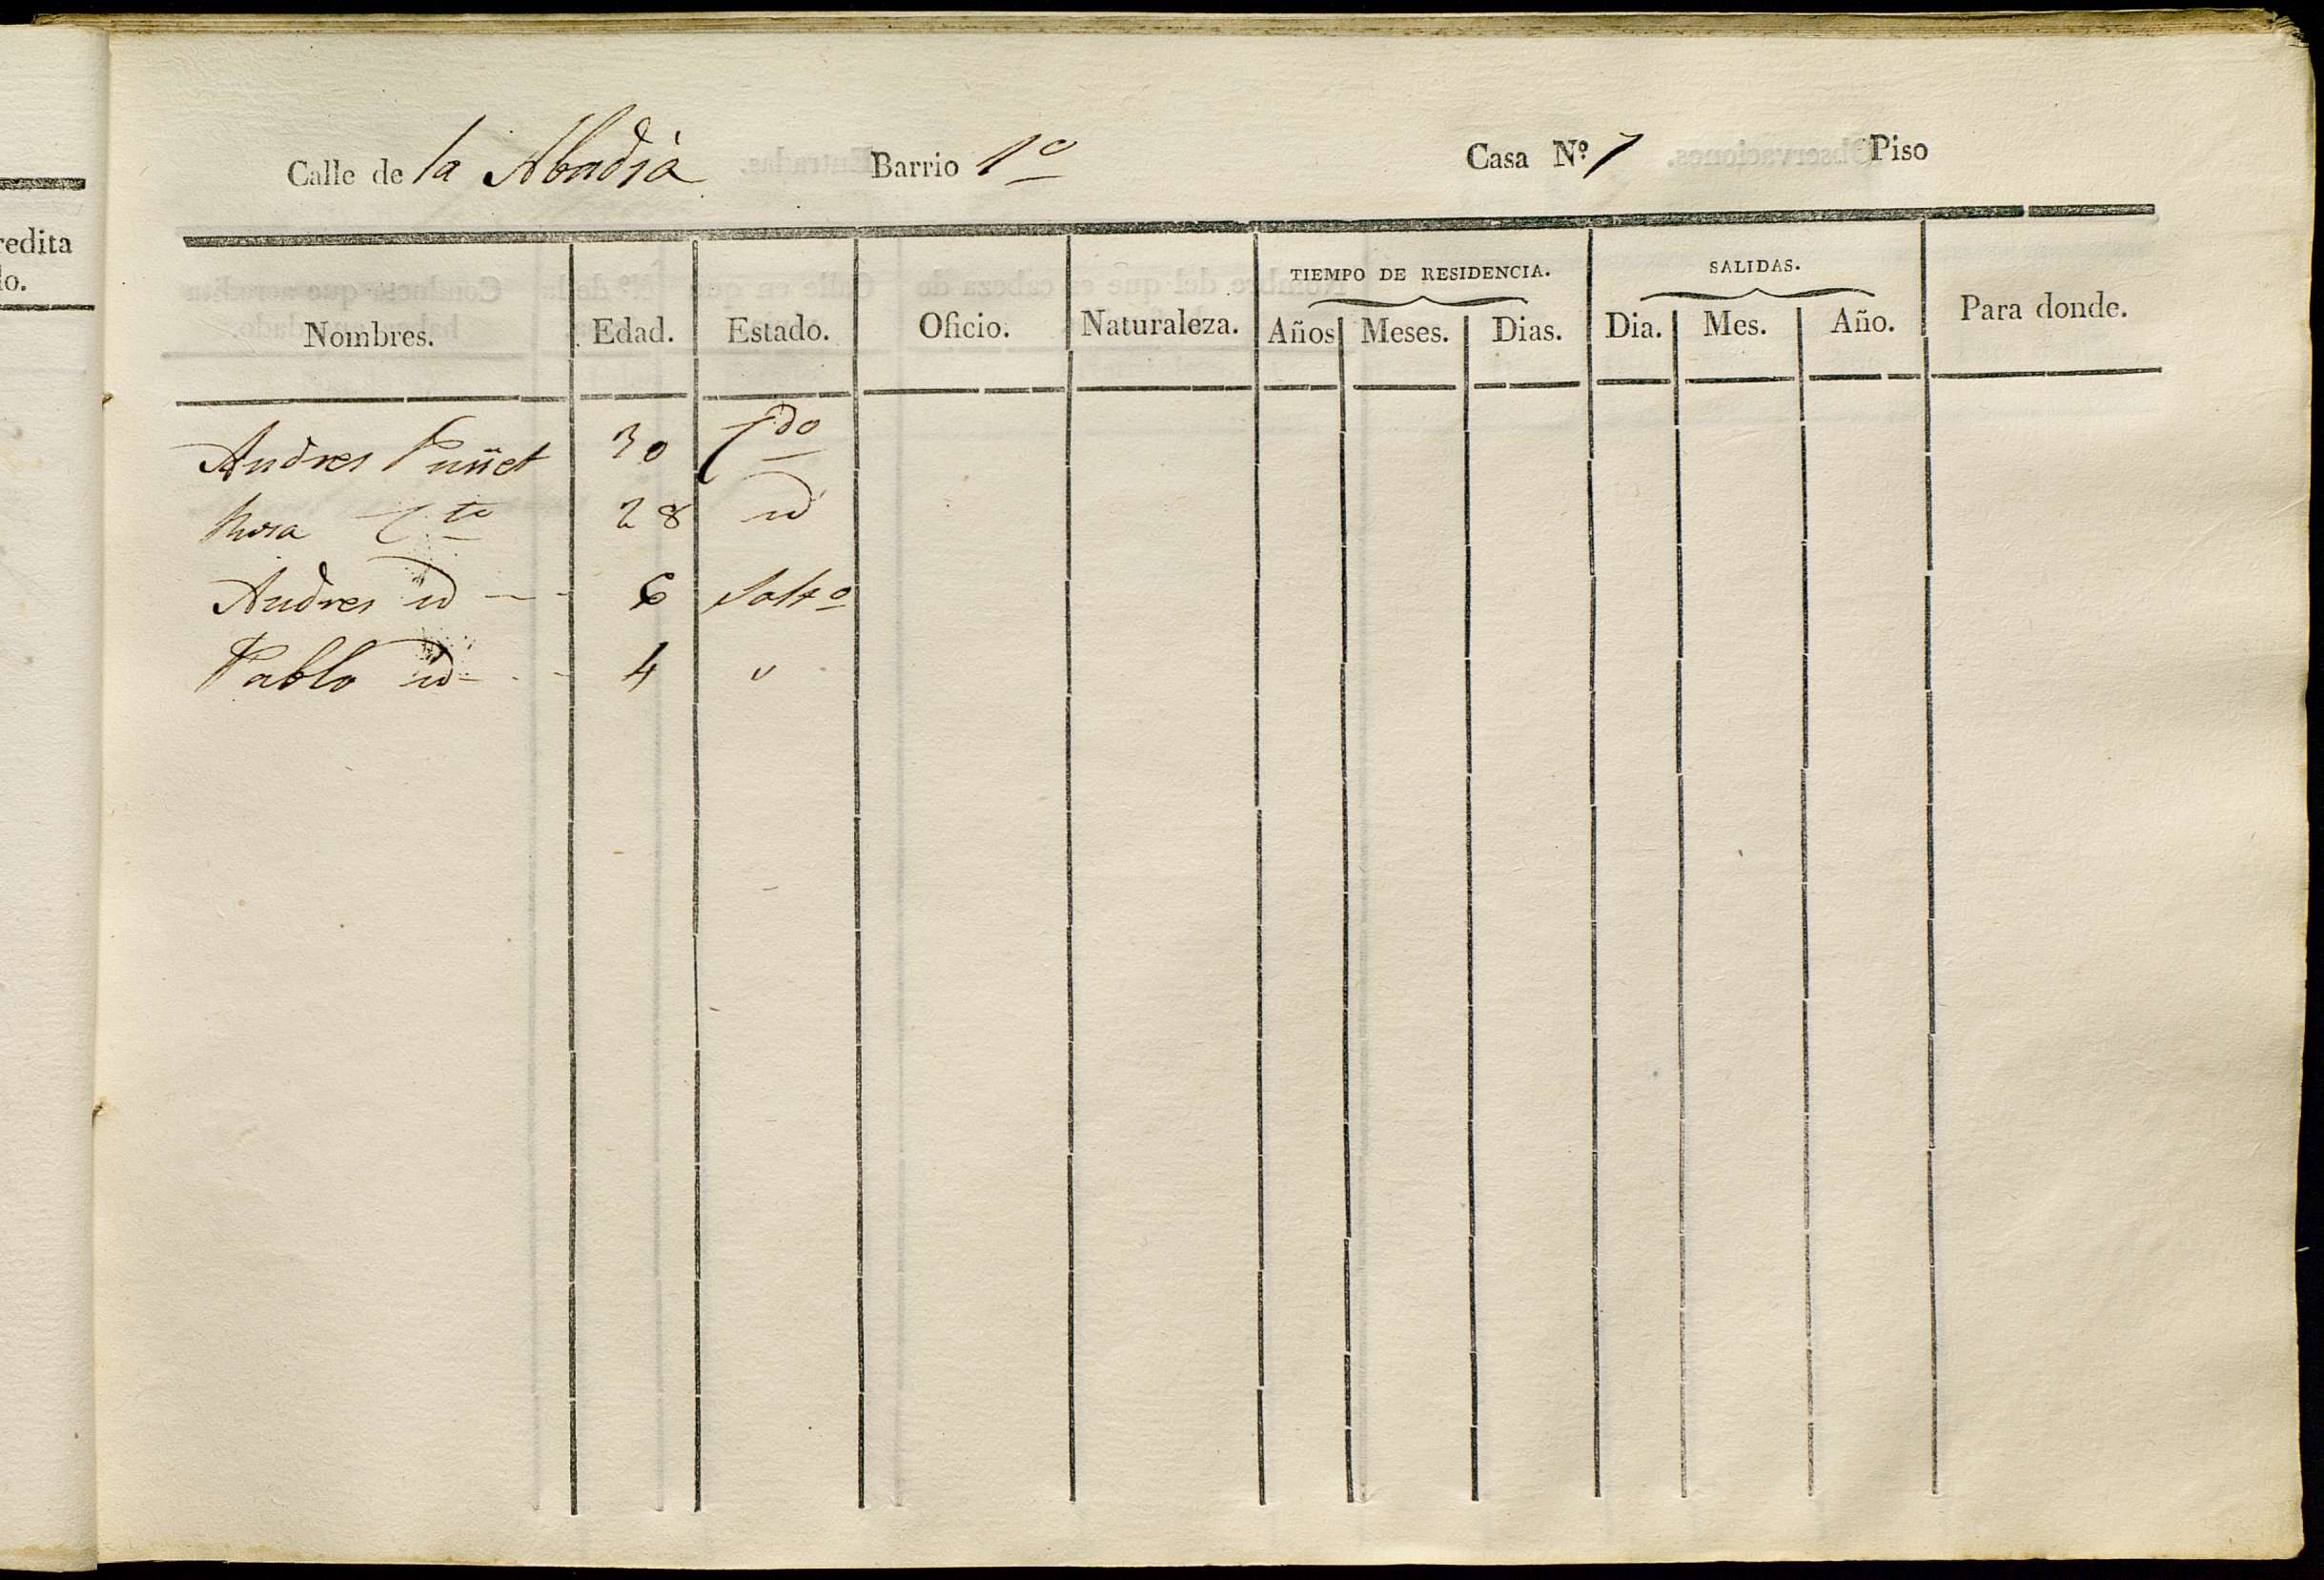 redita
lo.
Calle de la Abadia Barrio 1º Casa Nº 7 Piso
TIEMPO DE RESIDENCIA. SALIDAS.
Nombres. Edad. Estado. Oficio. Naturaleza. Años Meses. Dias. Dia. Mes. Año. Para donde.
Andres Puñet 30 Cdo
Rosa 28 id
Andres id 6 Solto
Pablo id 4 "